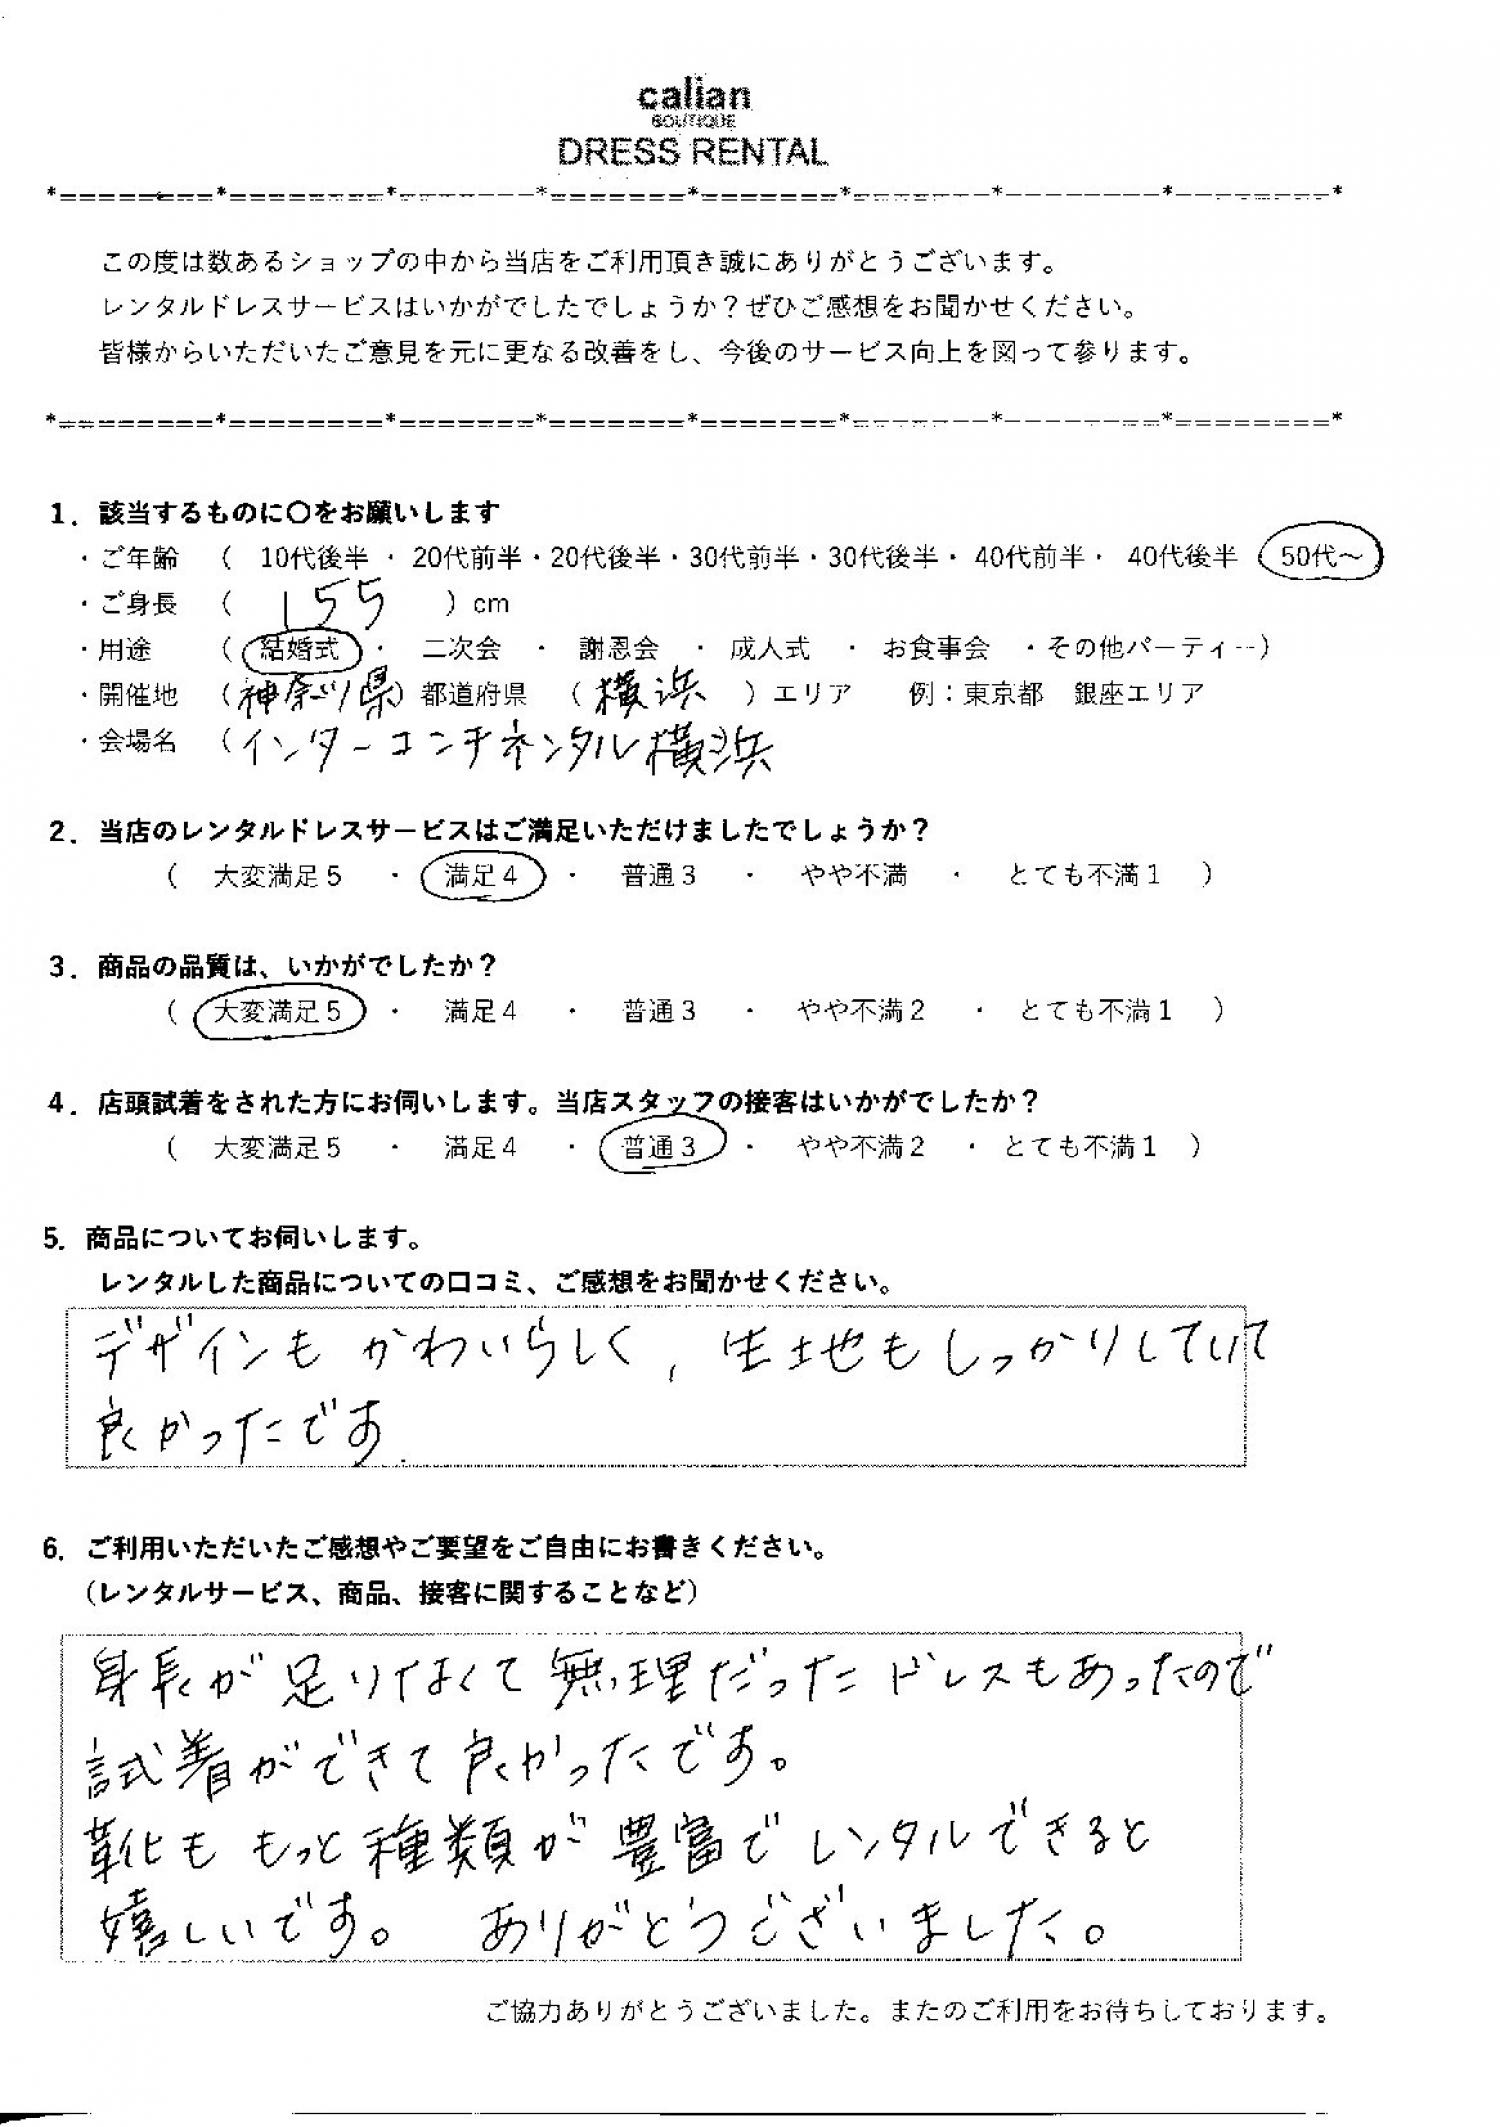 calian
BOUTIQUE
DRESS RENTAL
*=========*=========*========*========*========*========*=========*=========*
この度は数あるショップの中から当店をご利用頂き誠にありがとうございます。
レンタルドレスサービスはいかがでしたでしょうか？ぜひご感想をお聞かせください。
皆様からいただいたご意見を元に更なる改善をし、今後のサービス向上を図って参ります。
*=========*=========*========*========*========*========*=========*=========*
1．該当するものに〇をお願いします
・ご年齢 （ 10代後半 ・ 20代前半・20代後半・30代前半・30代後半・ 40代前半・ 40代後半 50代～
・ご身長 （ 155 ）cm
・用途 （ 結婚式 ・ 二次会 ・ 謝恩会 ・ 成人式 ・ お食事会 ・その他パーティー）
・開催地 （神奈川県）都道府県 （ 横浜 ）エリア 例：東京都 銀座エリア
・会場名 （インターコンチネンタル横浜
2．当店のレンタルドレスサービスはご満足いただけましたでしょうか？
（ 大変満足５ ・ 満足４ ・ 普通３ ・ やや不満 ・ とても不満１ ）
3．商品の品質は、いかがでしたか？
（ 大変満足５ ・ 満足４ ・ 普通３ ・ やや不満２ ・ とても不満１ ）
4．店頭試着をされた方にお伺いします。当店スタッフの接客はいかがでしたか？
（ 大変満足５ ・ 満足４ ・ 普通３ ・ やや不満２ ・ とても不満１ ）
5．商品についてお伺いします。
レンタルした商品についての口コミ、ご感想をお聞かせください。
デザインもかわいらしく、生地もしっかりしていて
良かったです.
6．ご利用いただいたご感想やご要望をご自由にお書きください。
（レンタルサービス、商品、接客に関することなど）
身長が足りなくて無理だったドレスもあったので
試着ができて良かったです。
靴ももっと種類が豊富でレンタルできると
嬉しいです。 ありがとうございました。
ご協力ありがとうございました。またのご利用をお待ちしております。